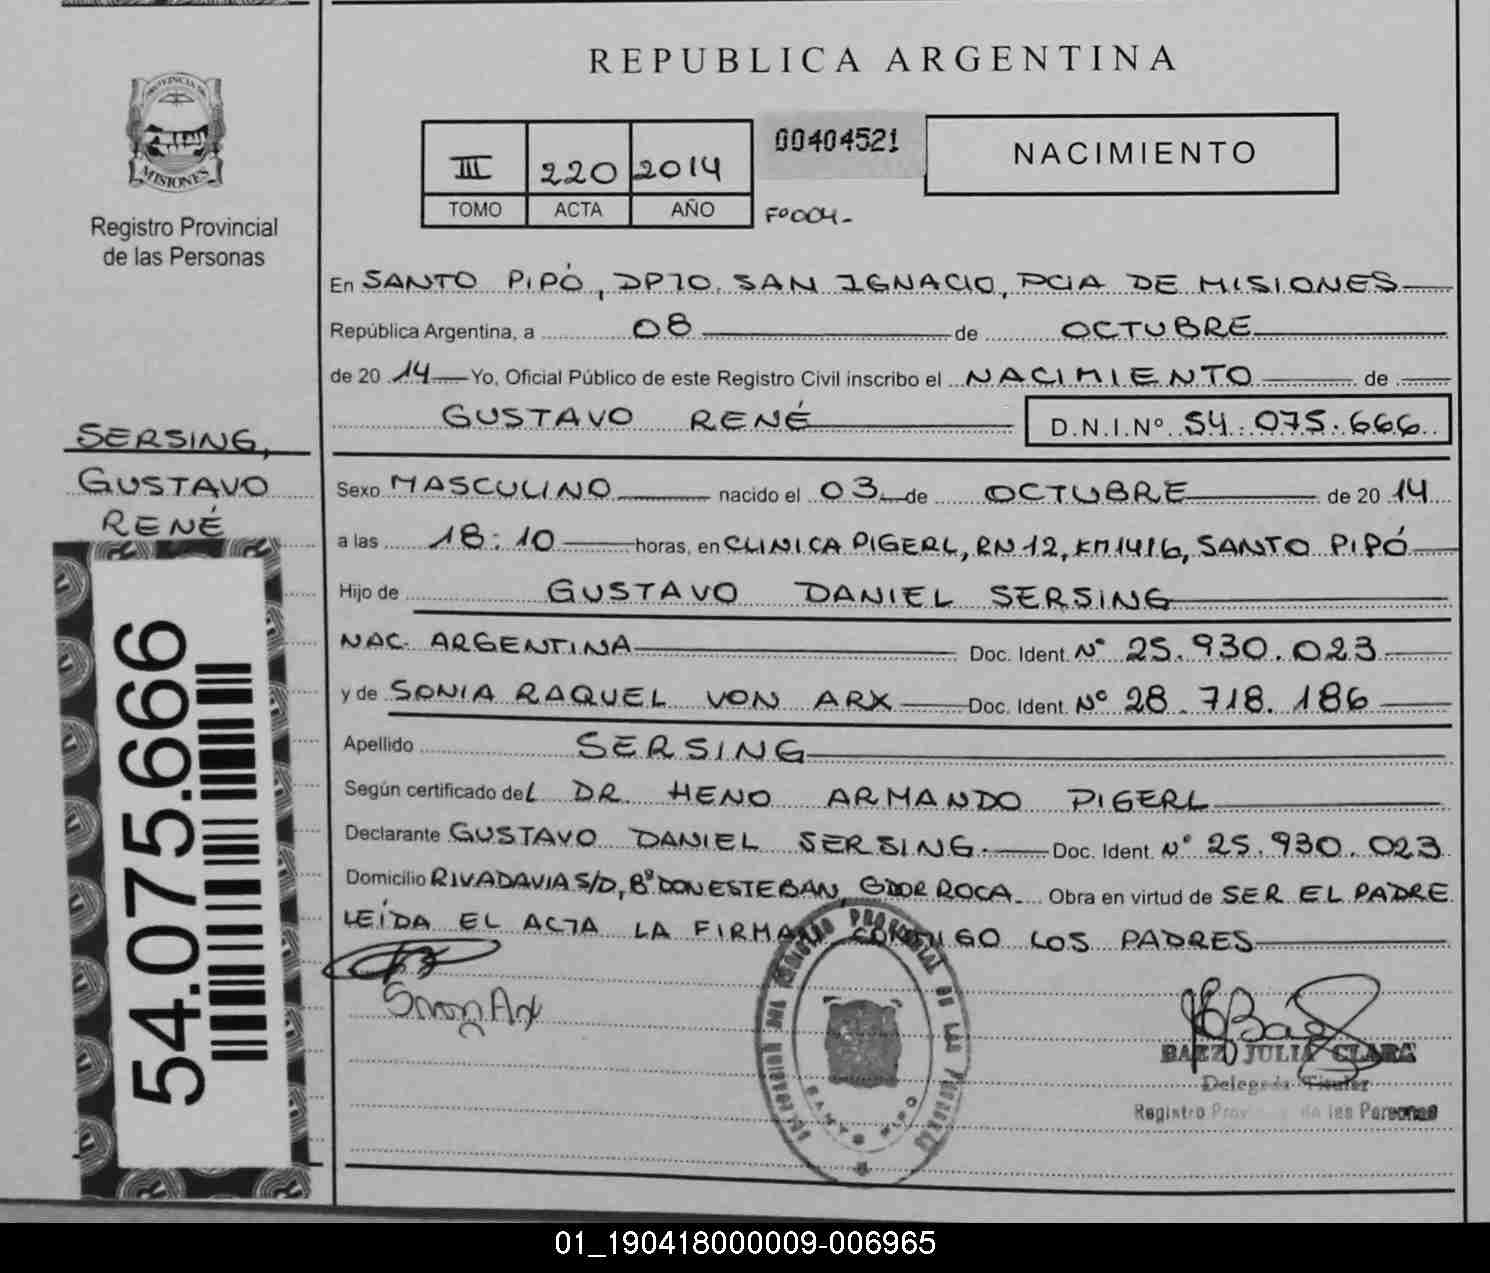 REPUBLICA ARGENTINA
PROVINCIA DE
MISIONES
Registro Provincial
de las Personas
III 220 2014
TOMO ACTA AÑO
00404521
Fº004-
NACIMIENTO
En SANTO PIPÓ, DPTO. SAN IGNACIO, PCIA DE MISIONES
República Argentina, a 08 de OCTUBRE
de 20 14 Yo, Oficial Público de este Registro Civil inscribo el NACIMIENTO de
GUSTAVO RENÉ D.N.I.Nº 54.075.666
SERSING,
GUSTAVO
RENÉ
Sexo MASCULINO nacido el 03 de OCTUBRE de 20 14
a las 18:10 horas, en CLINICA PIGERL, RN 12, KM1416, SANTO PIPÓ
Hijo de GUSTAVO DANIEL SERSING
NAC. ARGENTINA Doc. Ident. Nº 25.930.023
y de SONIA RAQUEL VON ARX Doc. Ident. Nº 28.718.186
Apellido SERSING
Según certificado del DR. HENO ARMANDO PIGERL
Declarante GUSTAVO DANIEL SERSING Doc. Ident. Nº 25.930.023
Domicilio RIVADAVIA S/D, Bº DON ESTEBAN, GDOR ROCA Obra en virtud de SER EL PADRE
LEÍDA EL ACTA LA FIRMAN CONMIGO LOS PADRES
54.075.666
REGISTRO PROVINCIAL DE LAS PERSONAS
SANTO PIPO
BAEZ JULIA CLARA
Delegada Titular
Registro Provincial de las Personas
01_190418000009-006965